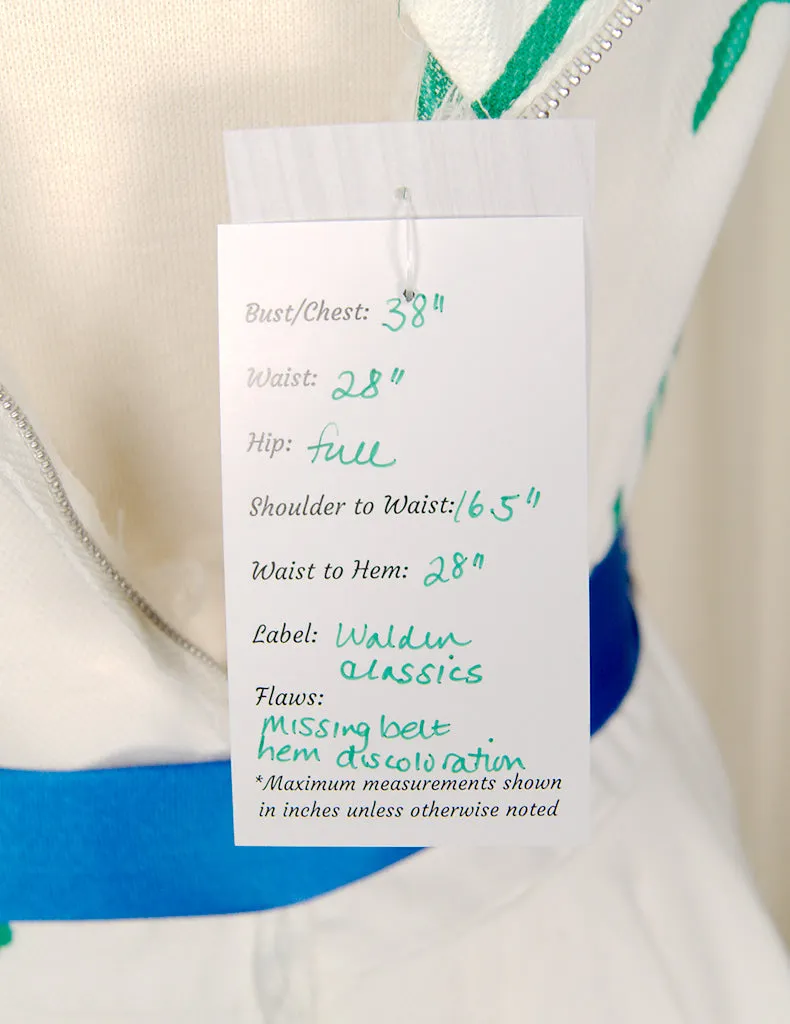 Bust/Chest: 38"
Waist: 28"
Hip: full
Shoulder to Waist: 16.5"
Waist to Hem: 28"
Label: Walden
classics
Flaws:
Missing belt
hem discoloration
*Maximum measurements shown
in inches unless otherwise noted